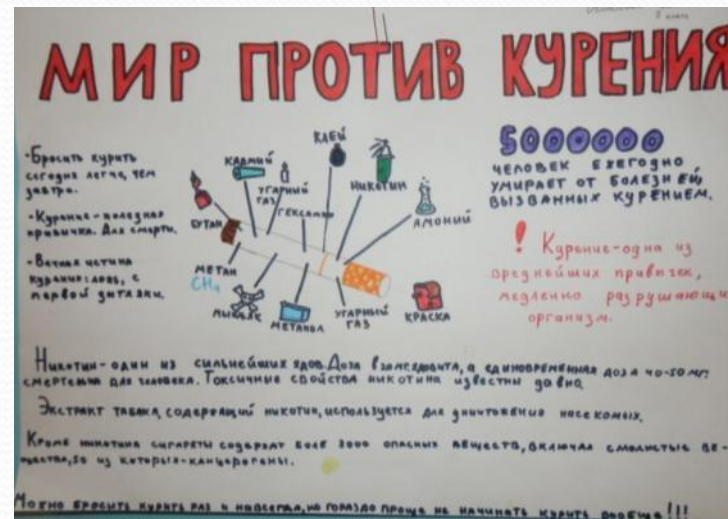 МИР ПРОТИВ КУРЕНИЯ
-Бросить курить
сегодня легче, чем
завтра.
-Курение-полезная
привычка. Для смерти.
-Вечная истина
курения: лишь, с
первой затяжки.
КАДМИЙ
УГАРНЫЙ
ГАЗ
ГЕКСАМИН
КЛЕЙ
НИКОТИН
АМОНИЙ
БУТАН
МЕТАН
CH4
МЫШЬЯК
МЕТАНОЛ
УГАРНЫЙ
ГАЗ
КРАСКА
5000000
ЧЕЛОВЕК ЕЖЕГОДНО
УМИРАЕТ ОТ БОЛЕЗНЕЙ,
ВЫЗВАННЫХ КУРЕНИЕМ.
! Курение-одна из
вреднейших привычек,
медленно разрушающих
организм.
Никотин-один из сильнейших ядов. Доза, а единовременная доза 40-50 мг.
смертельна для человека. Токсичные свойства никотина известны давно.
Экстракт табака, содержащий никотин, используется для уничтожения насекомых.
Кроме никотина сигареты содержат боле 3000 опасных веществ, включая смолистые ве-
щества, 50 из которых-канцерогены.
Можно бросить курить раз и навсегда, но гораздо проще не начинать курить вообще!!!